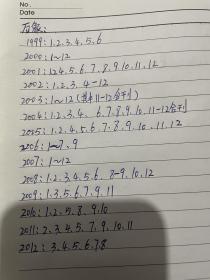 No.
Date
1999: 1.2.3.4.5.6
2000: 1~12
2001: 1.2.4.5.6.7.8.9.10.11.12
2002: 1.2.3.4-12
2003: 1~12 (其中11-12合刊)
2004: 1.2.3.4. 6.7.8.9.10.11-12合刊
2005: 1.2.4.5.6.7.8.9.10.11.12
2006: 1~7.9
2007: 1~12
2008: 1.2.3.4.5.6. 8-9.10.12
2009: 1.3.5.6.7.9.11
2010: 1.2.5.8.9.10
2011: 2.3.4.5.7.9.10.11
2012: 3.4.5.6.7.8